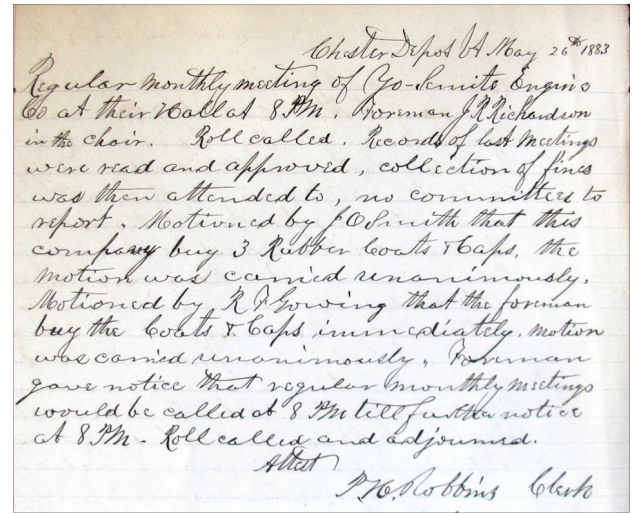 Chester Depot Vt May 26th 1883
Regular monthly meeting of Yo-Semite Engine
Co at their Hall at 8 PM. Foreman J R Richardson
in the chair. Roll called. Records of last meetings
were read and approved, collection of fines
was then attended to, no committees to
report. Motioned by J O Smith that this
company buy 3 Rubber Coats & Caps, the
motion was carried unanimously.
Motioned by R F Gowing that the foreman
buy the Coats & Caps immediately. motion
was carried unanimously. Foreman
gave notice that regular monthly meetings
would be called at 8 PM till further notice
at 8 PM - Roll called and adjourned.
Attest
Robbins Clerk